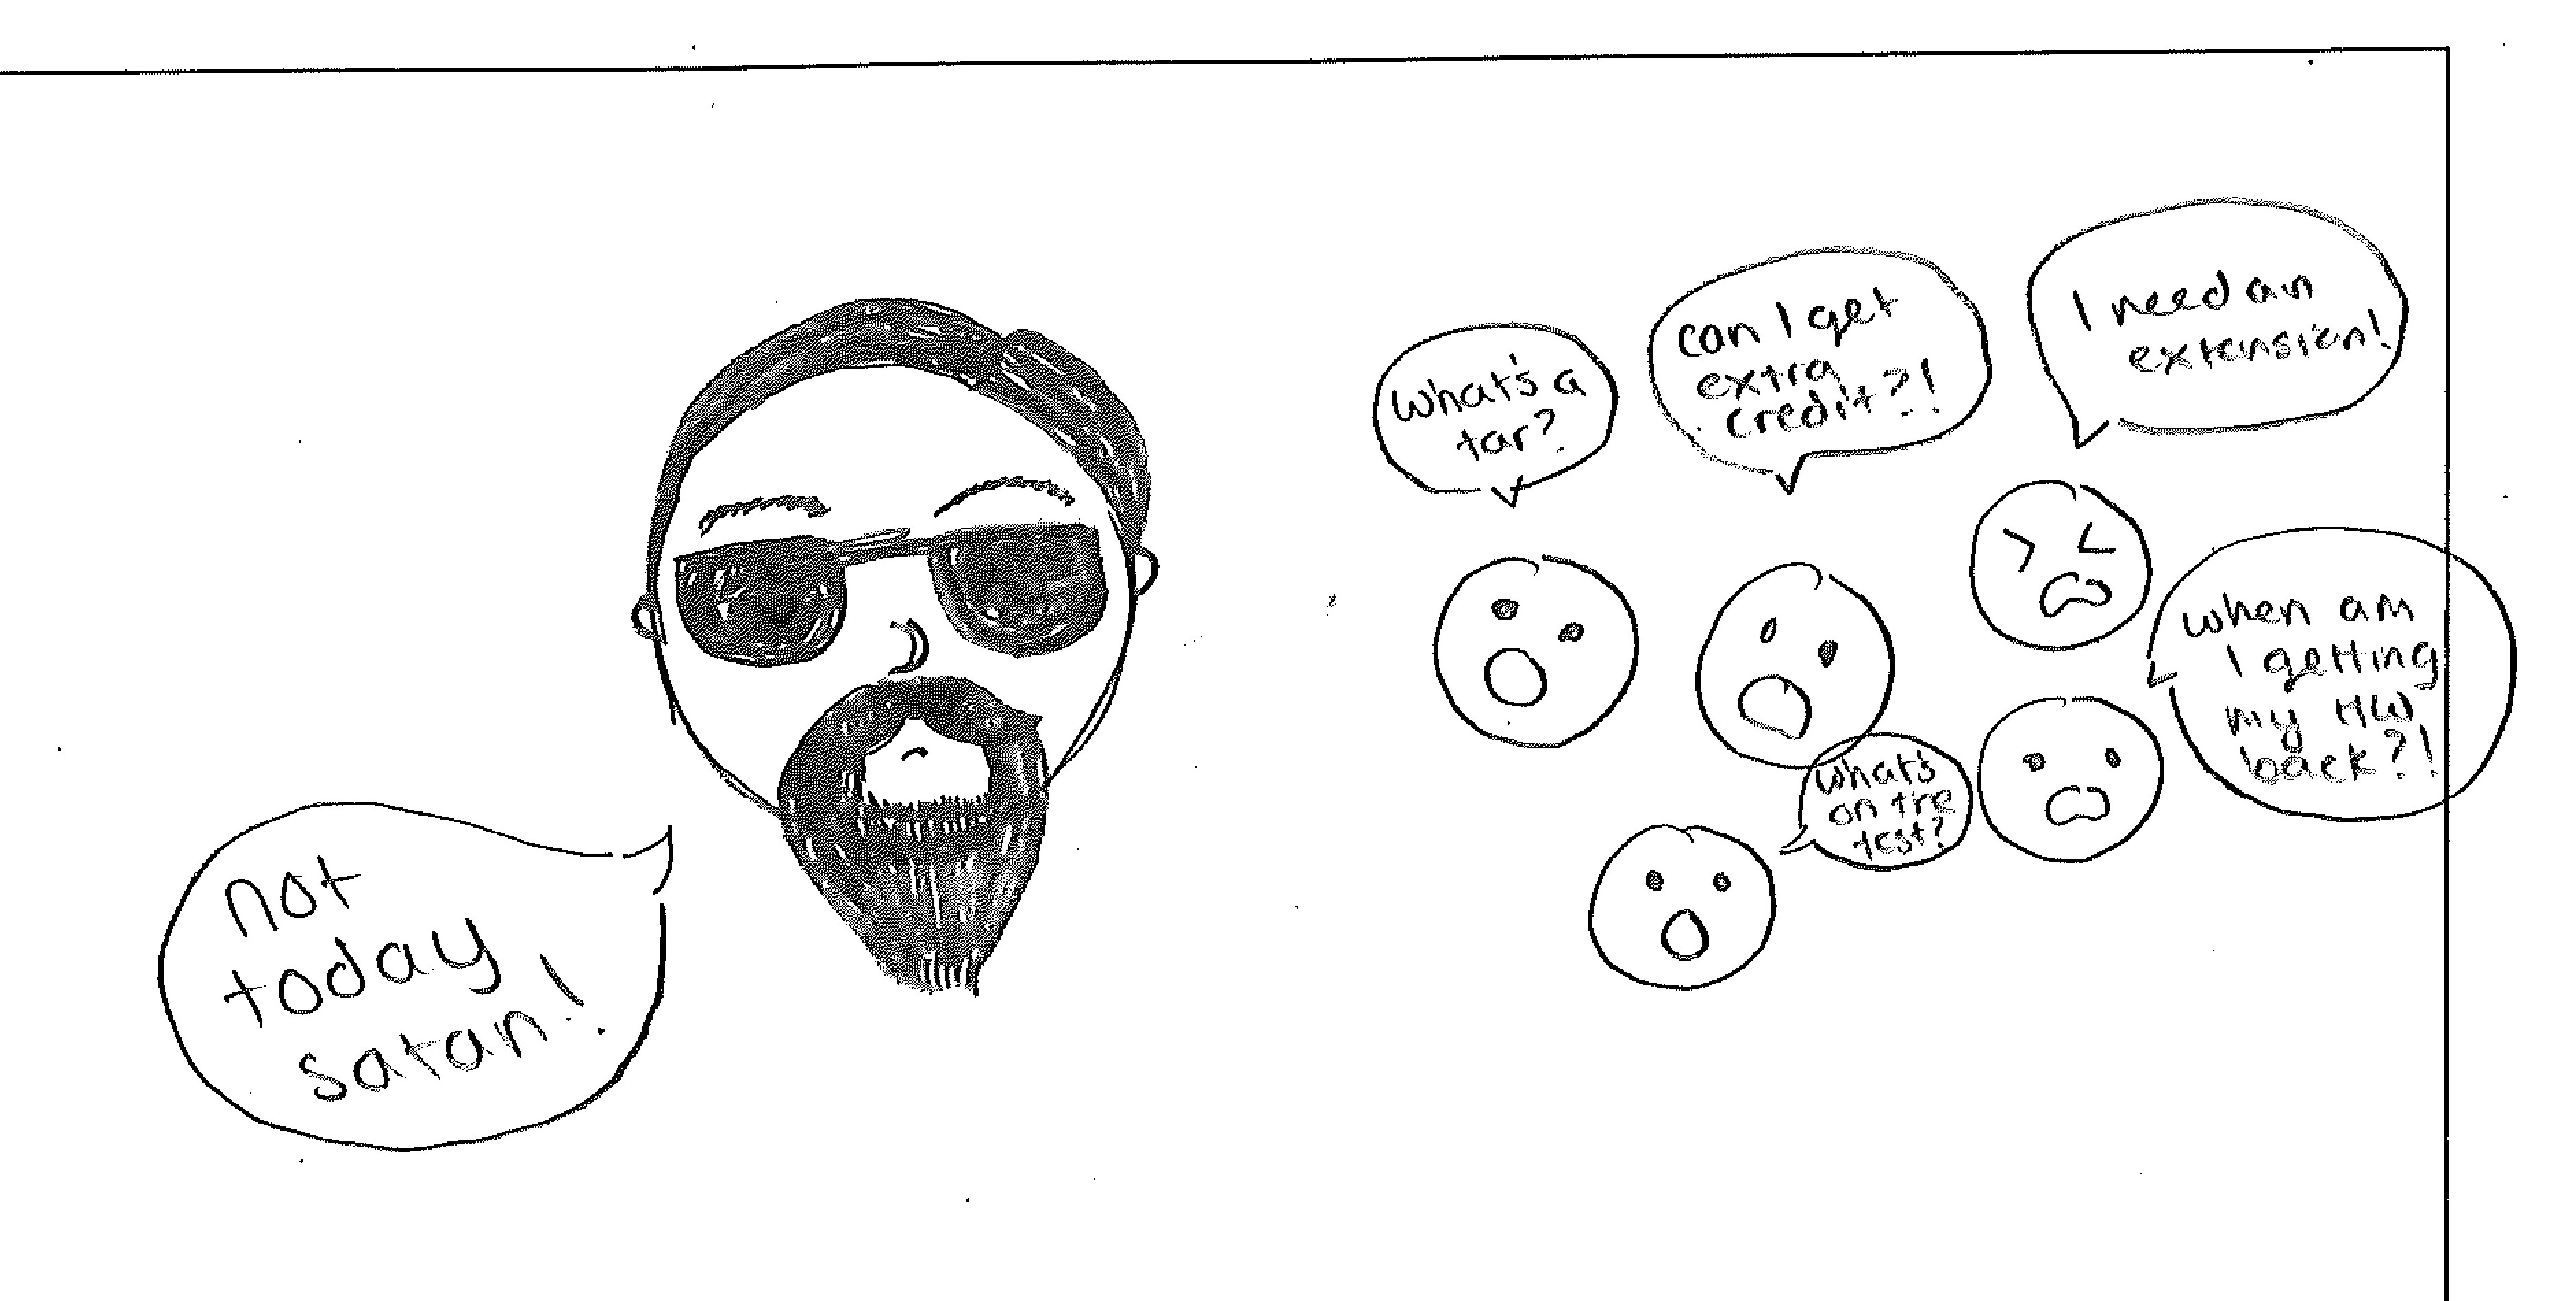 What's a
tar?
can I get
extra
credit?!
I need an
extension!
when am
I getting
my HW
back?!
What's
on the
test?
not
today
satan!